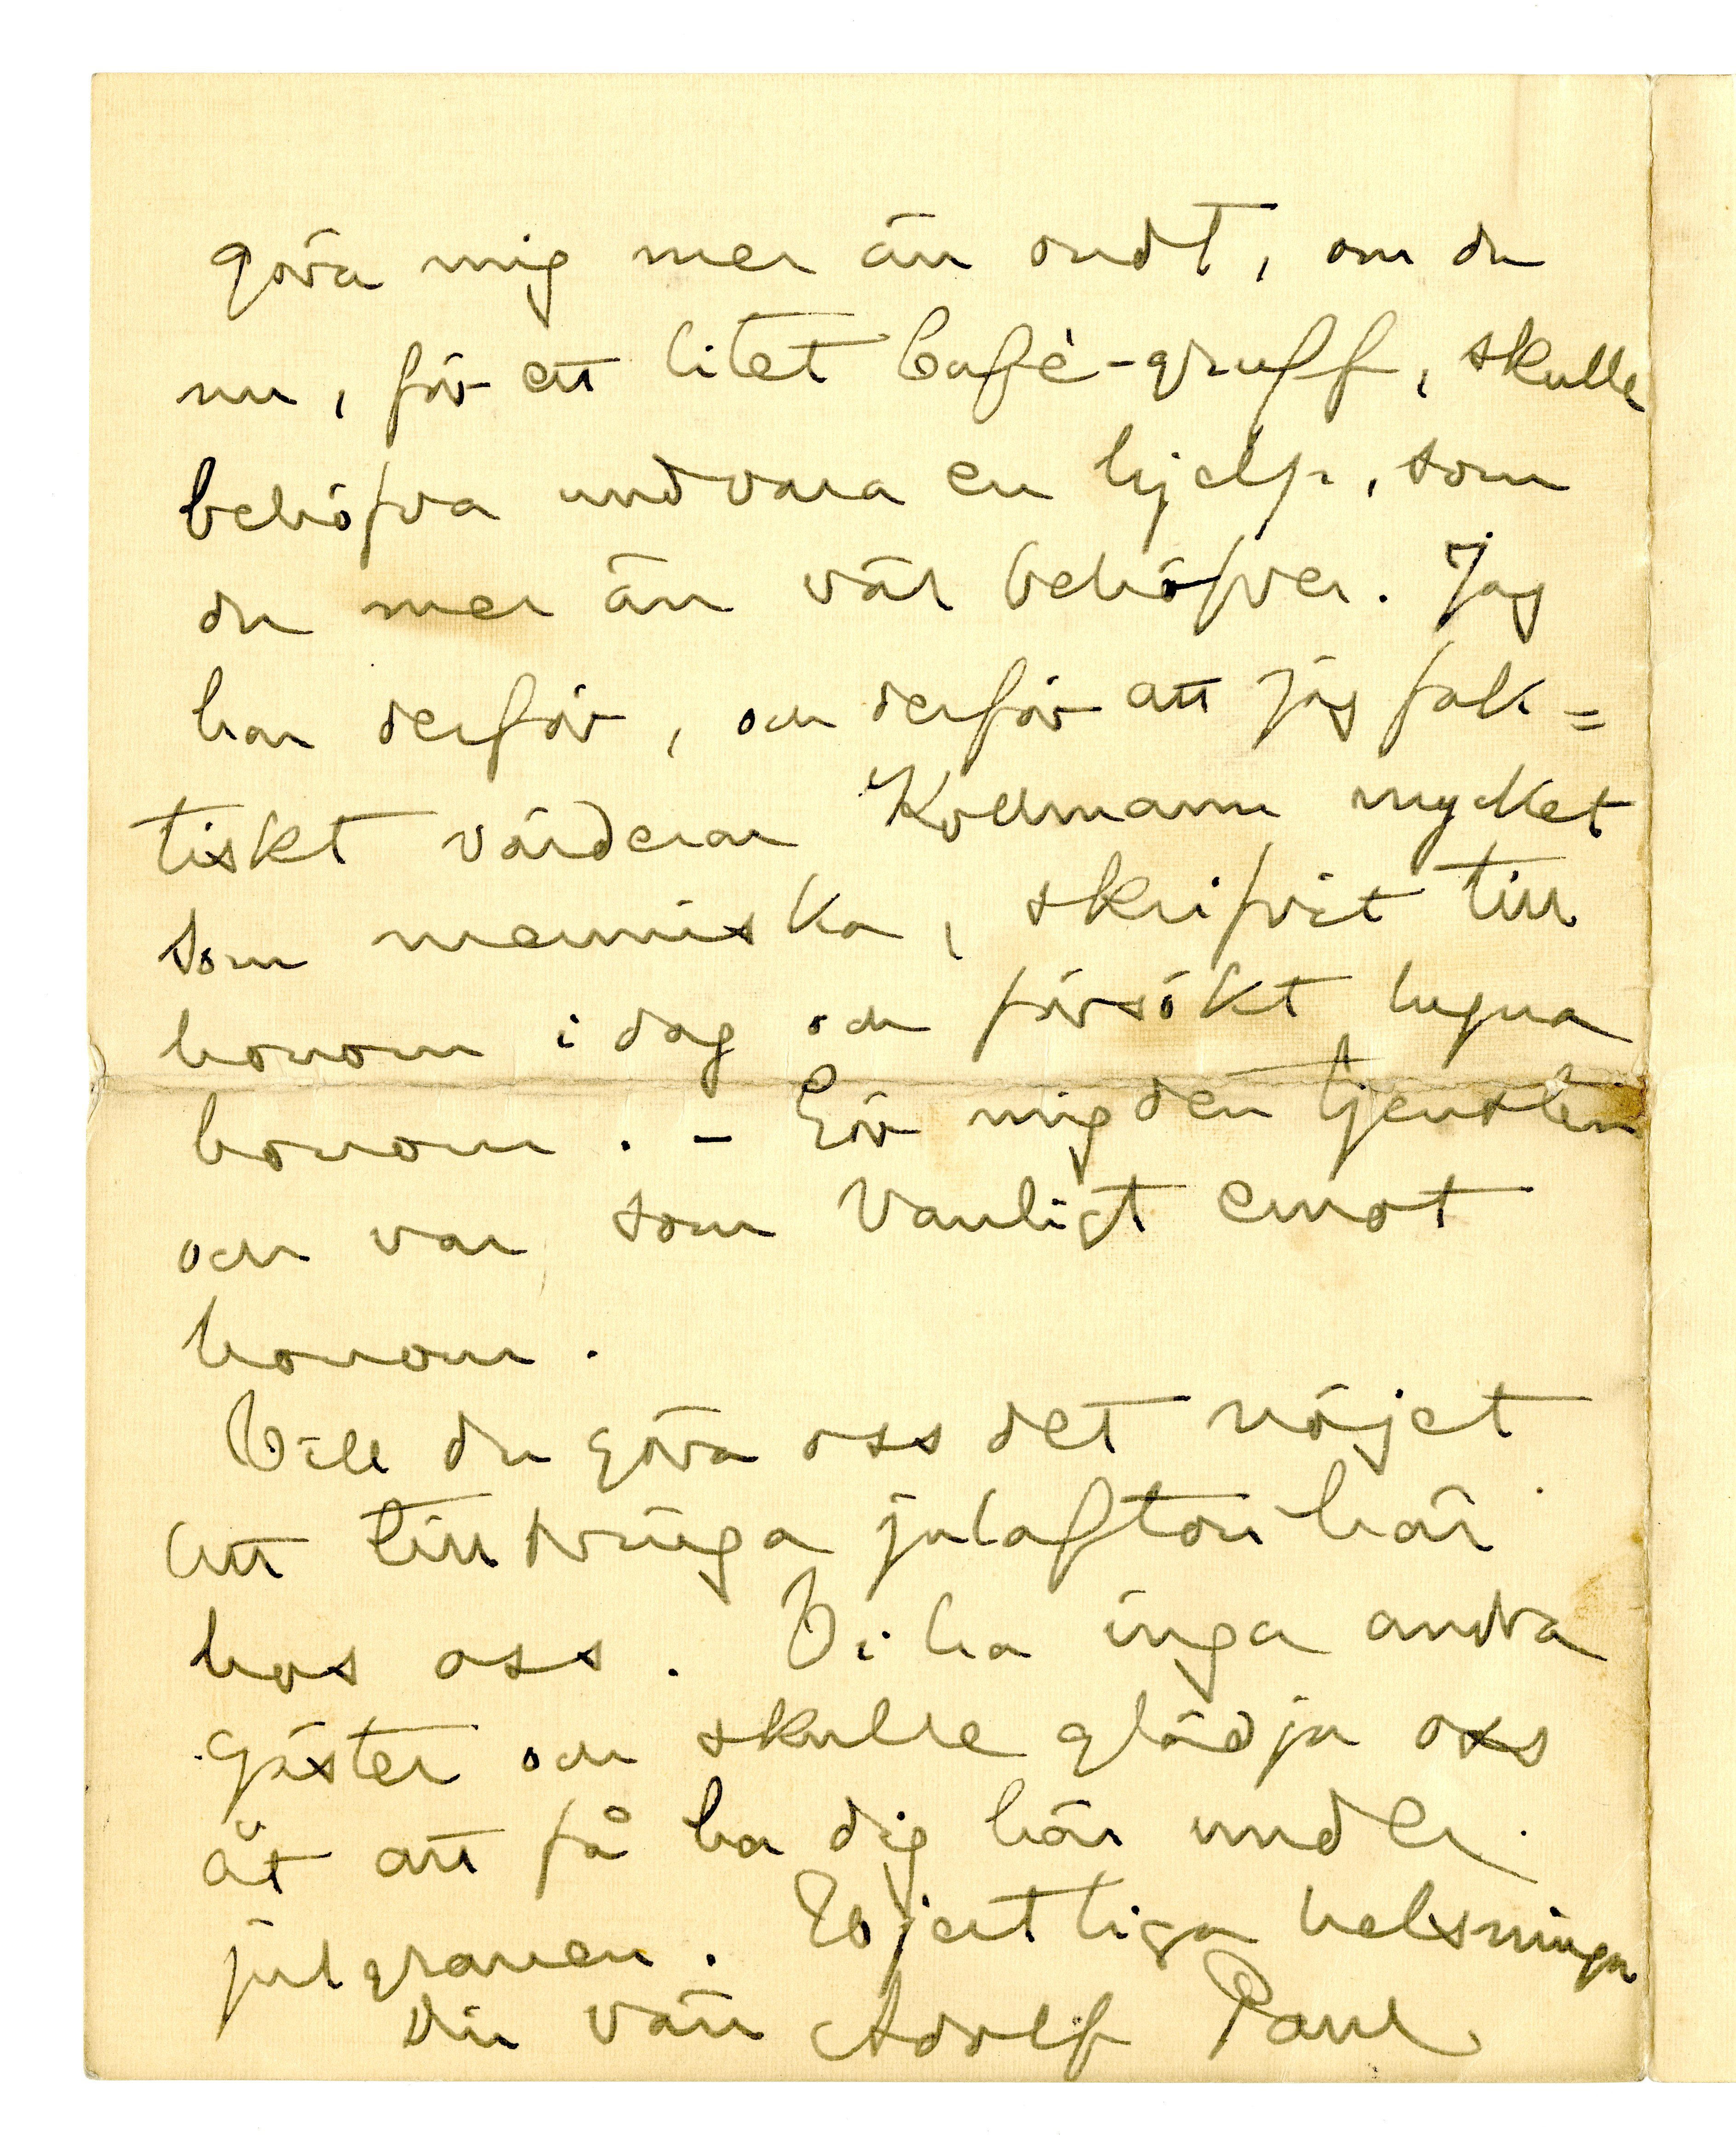 göra mig mer än ondt, om du
nu, för ett litet Café-gruff, skulle
behöfva undvara en hjelp, som
du mer än väl behöfver. Jag
har derför, och derför att jag fak=
tiskt värderar Kollmann mycket
som menniska, skrifvit till
honom i dag och försökt lugna
honom. – Gör mig den tjensten
och var som vanligt emot
honom.
Vill du göra oss det nöjet
att tillbringa julafton här
hos oss. Vi ha inga andra
gäster och skulle glädja oss
åt att få ha dig här under
julgranen. Hjertliga helsningar
Din vän Adolf Paul